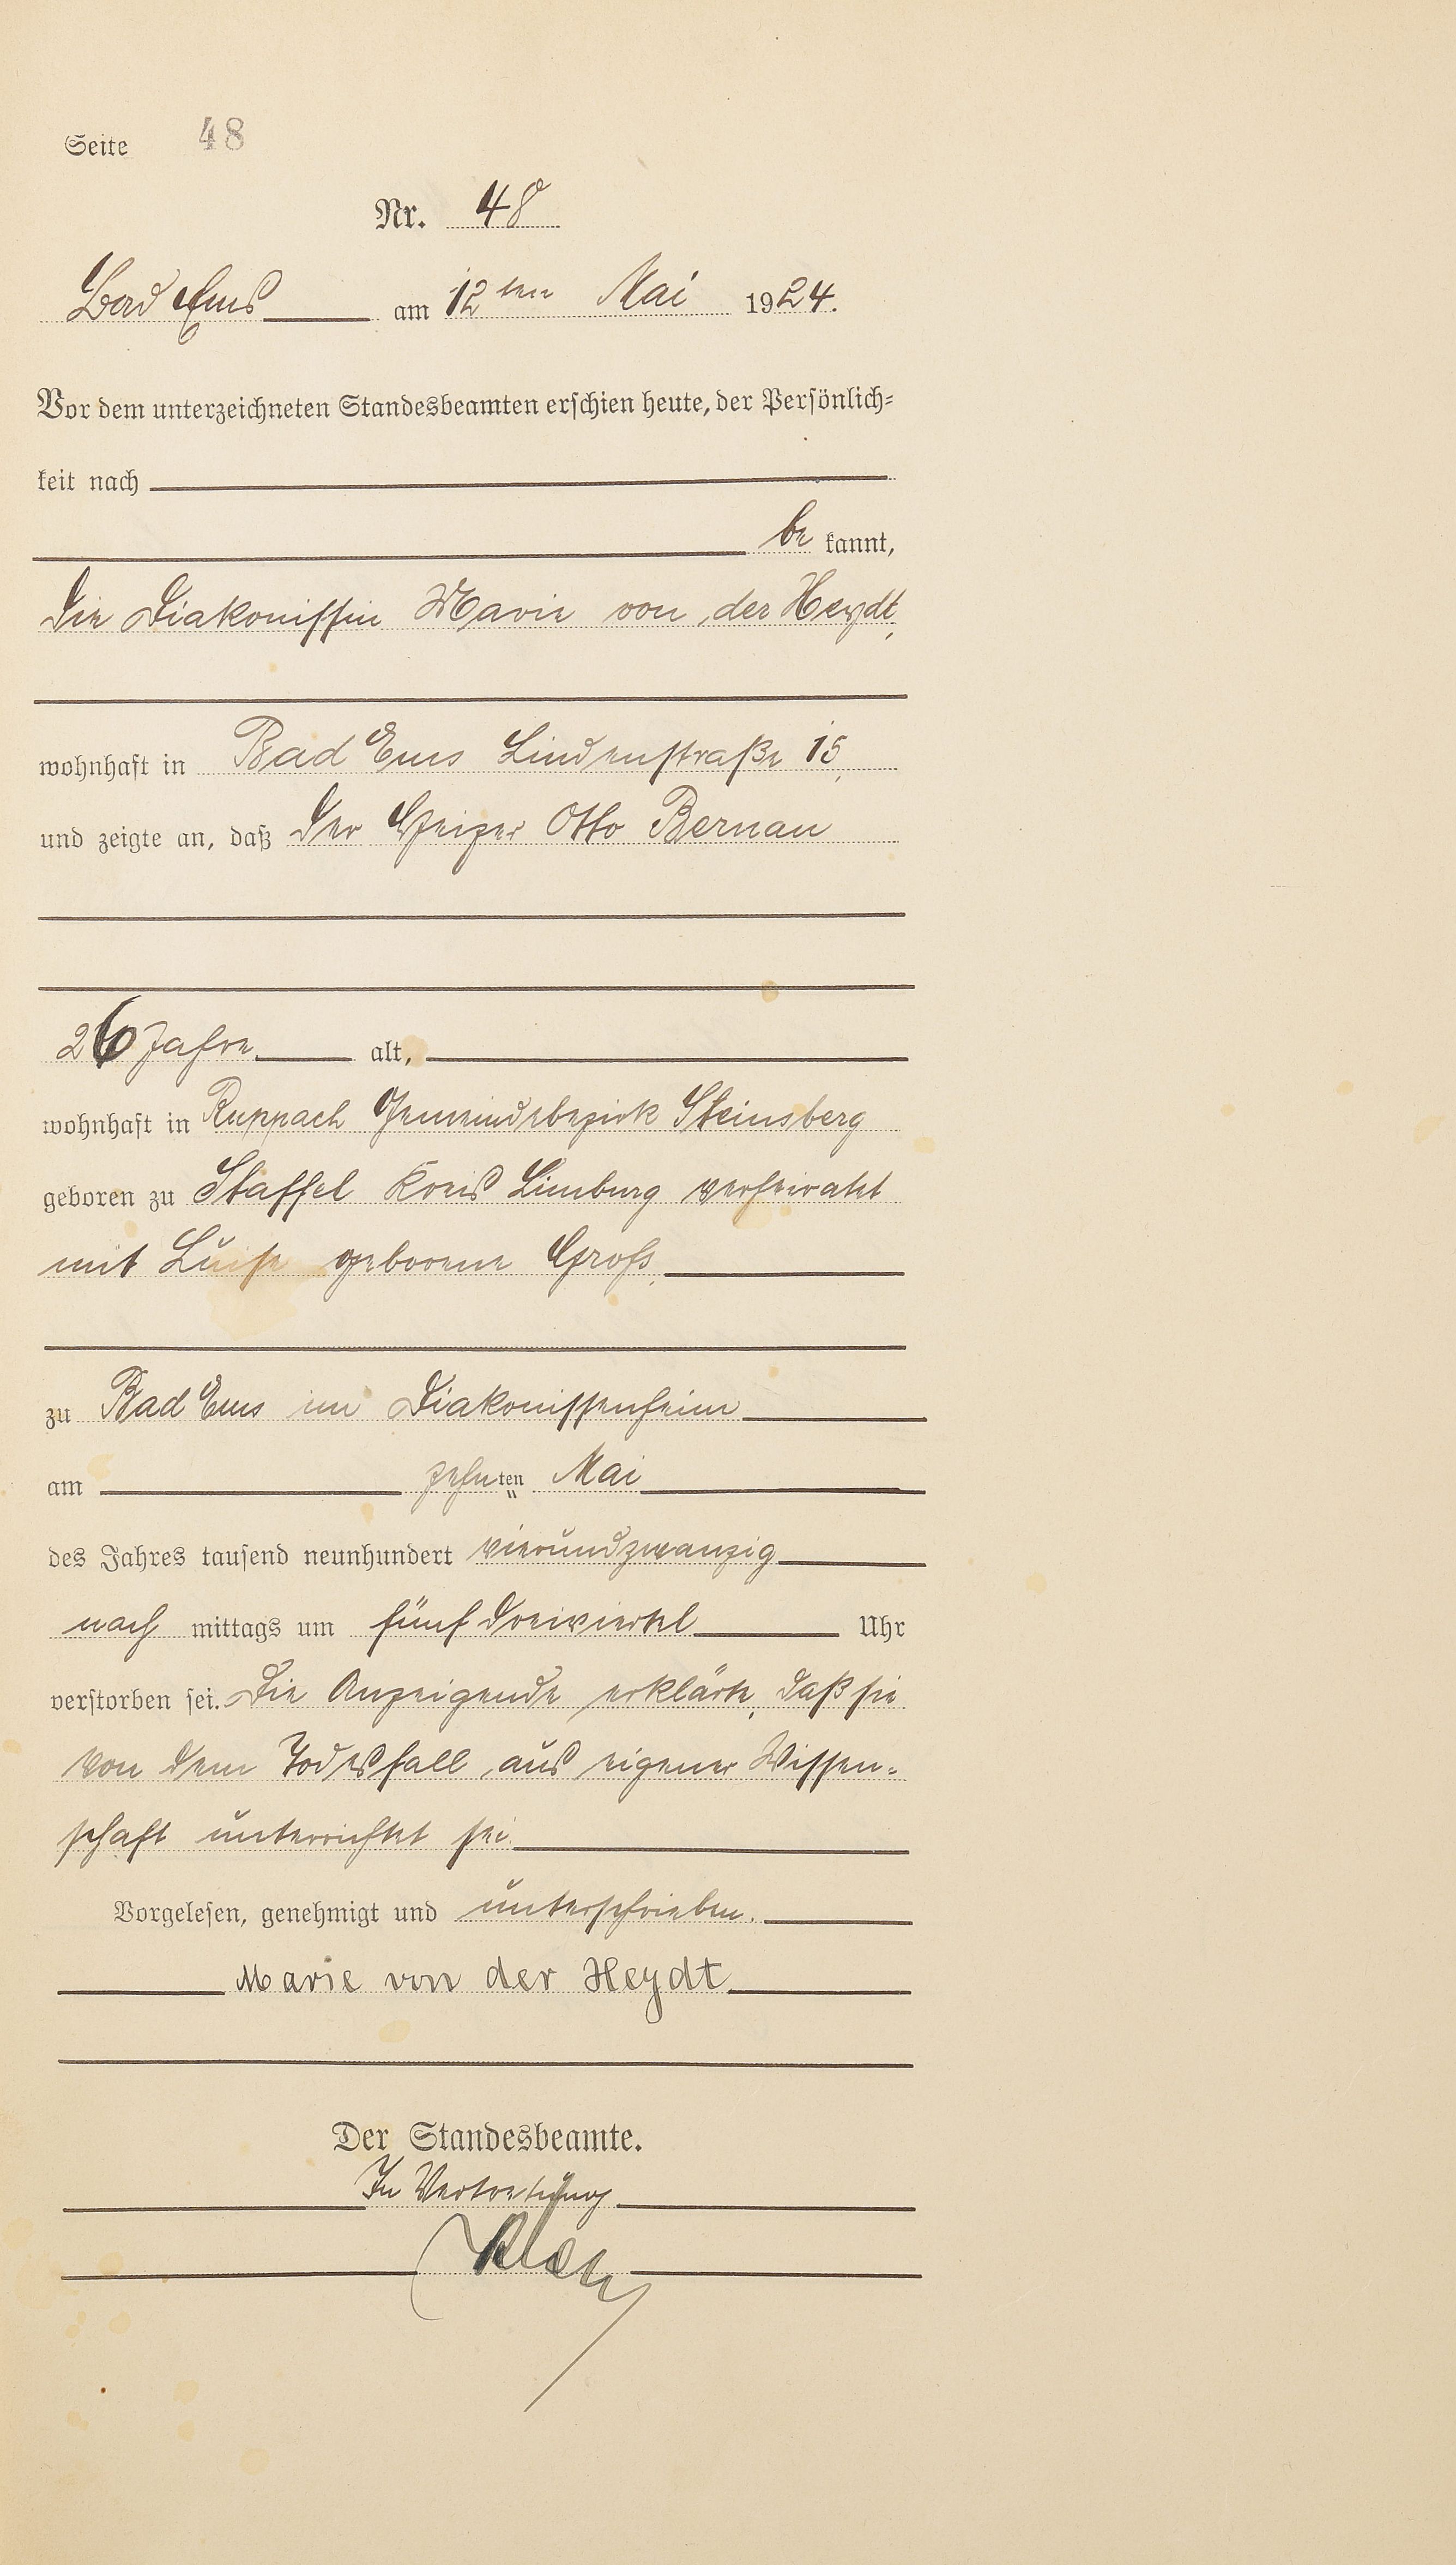 Seite 48
Nr. 48
Bad Ems am 12ten Mai 1924.
Vor dem unterzeichneten Standesbeamten erschien heute, der Persönlich-
keit nach
be kannt,
die Diakonissin Marie von der Heydt,
wohnhaft in Bad Ems Lindenstraße 15,
und zeigte an, daß der Heizer Otto Bernau
26 Jahre alt,
wohnhaft in Ruppach Gemeindebezirk Steinsberg
geboren zu Staffel Kreis Limburg verheiratet
mit Luise geborene Groß,
zu Bad Ems im Diakonissenheim
am zehnten Mai
des Jahres tausend neunhundert vierundzwanzig
nach mittags um fünf dreiviertel Uhr
verstorben sei. Die Anzeigende erklärte, daß sie
von dem Todesfall aus eigener Wissen-
schaft unterrichtet sei.
Vorgelesen, genehmigt und unterschrieben.
Marie von der Heydt
Der Standesbeamte.
In Vertretung